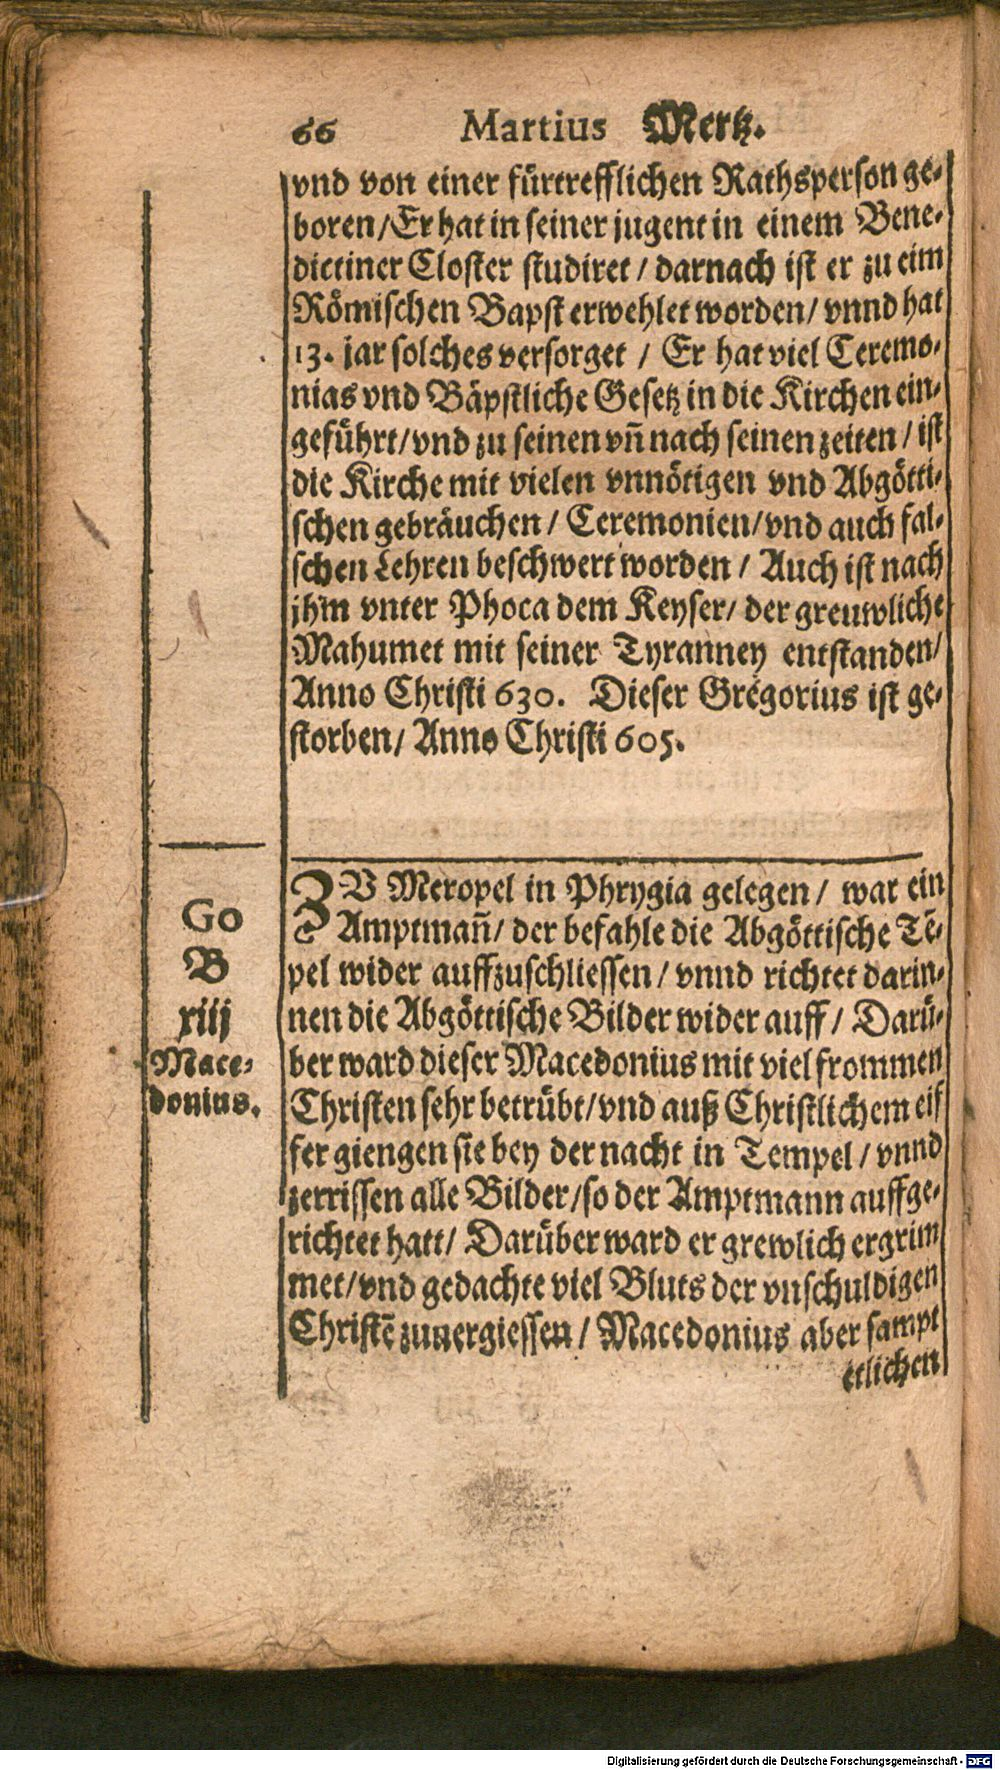 66 Martius Mertz.
vnd von einer fürtrefflichen Rathsperson ge-
boren/Er hat in seiner jugent in einem Bene-
dictiner Closter studiret / darnach ist er zu eim
Römischen Bapst erwehlet worden/ vnnd hat
13. jar solches versorget / Er hat viel Ceremo-
nias vnd Bäpstliche Gesetz in die Kirchen ein-
geführt/vnd zu seinen vn̄ nach seinen zeiten / ist
die Kirche mit vielen vnnötigen vnd Abgötti-
schen gebräuchen / Ceremonien/vnd auch fal-
schen Lehren beschwert worden / Auch ist nach
jhm vnter Phoca dem Keyser/ der greuwliche
Mahumet mit seiner Tyranney entstanden/
Anno Christi 630. Dieser Gregorius ist ge-
storben/ Anno Christi 605.
Go
B
xiij
Mace-
donius.
ZV Meropel in Phrygia gelegen / war ein
Amptman̄/ der befahle die Abgöttische Tē-
pel wider auffzuschliessen / vnnd richtet darin-
nen die Abgöttische Bilder wider auff / Darü-
ber ward dieser Macedonius mit viel frommen
Christen sehr betrübt/vnd auß Christlichem eif
fer giengen sie bey der nacht in Tempel / vnnd
zerrissen alle Bilder /so der Amptmann auffge-
richtet hatt/ Darüber ward er grewlich ergrim
met/vnd gedachte viel Bluts der vnschuldigen
Christē zuuergiessen / Macedonius aber sampt
etlichen
Digitalisierung gefördert durch die Deutsche Forschungsgemeinschaft - DFG